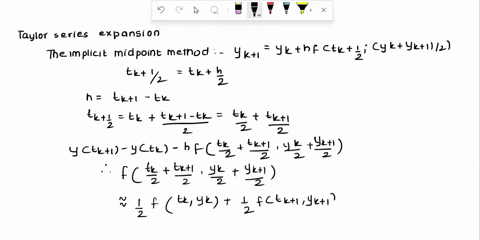 Taylor series expansion
The implicit midpoint method :- y_{k+1} = y_k + h f (t_{k+1/2} ; (y_k + y_{k+1})/2)
t_{k+1/2} = t_k + h/2
h = t_{k+1} - t_k
t_{k+1/2} = t_k + (t_{k+1} - t_k)/2 = t_k/2 + t_{k+1}/2
y(t_{k+1}) - y(t_k) - h f (t_k/2 + t_{k+1}/2 , y_k/2 + y_{k+1}/2)
∴ f (t_k/2 + t_{k+1}/2 , y_k/2 + y_{k+1}/2)
≈ 1/2 f (t_k, y_k) + 1/2 f (t_{k+1}, y_{k+1})